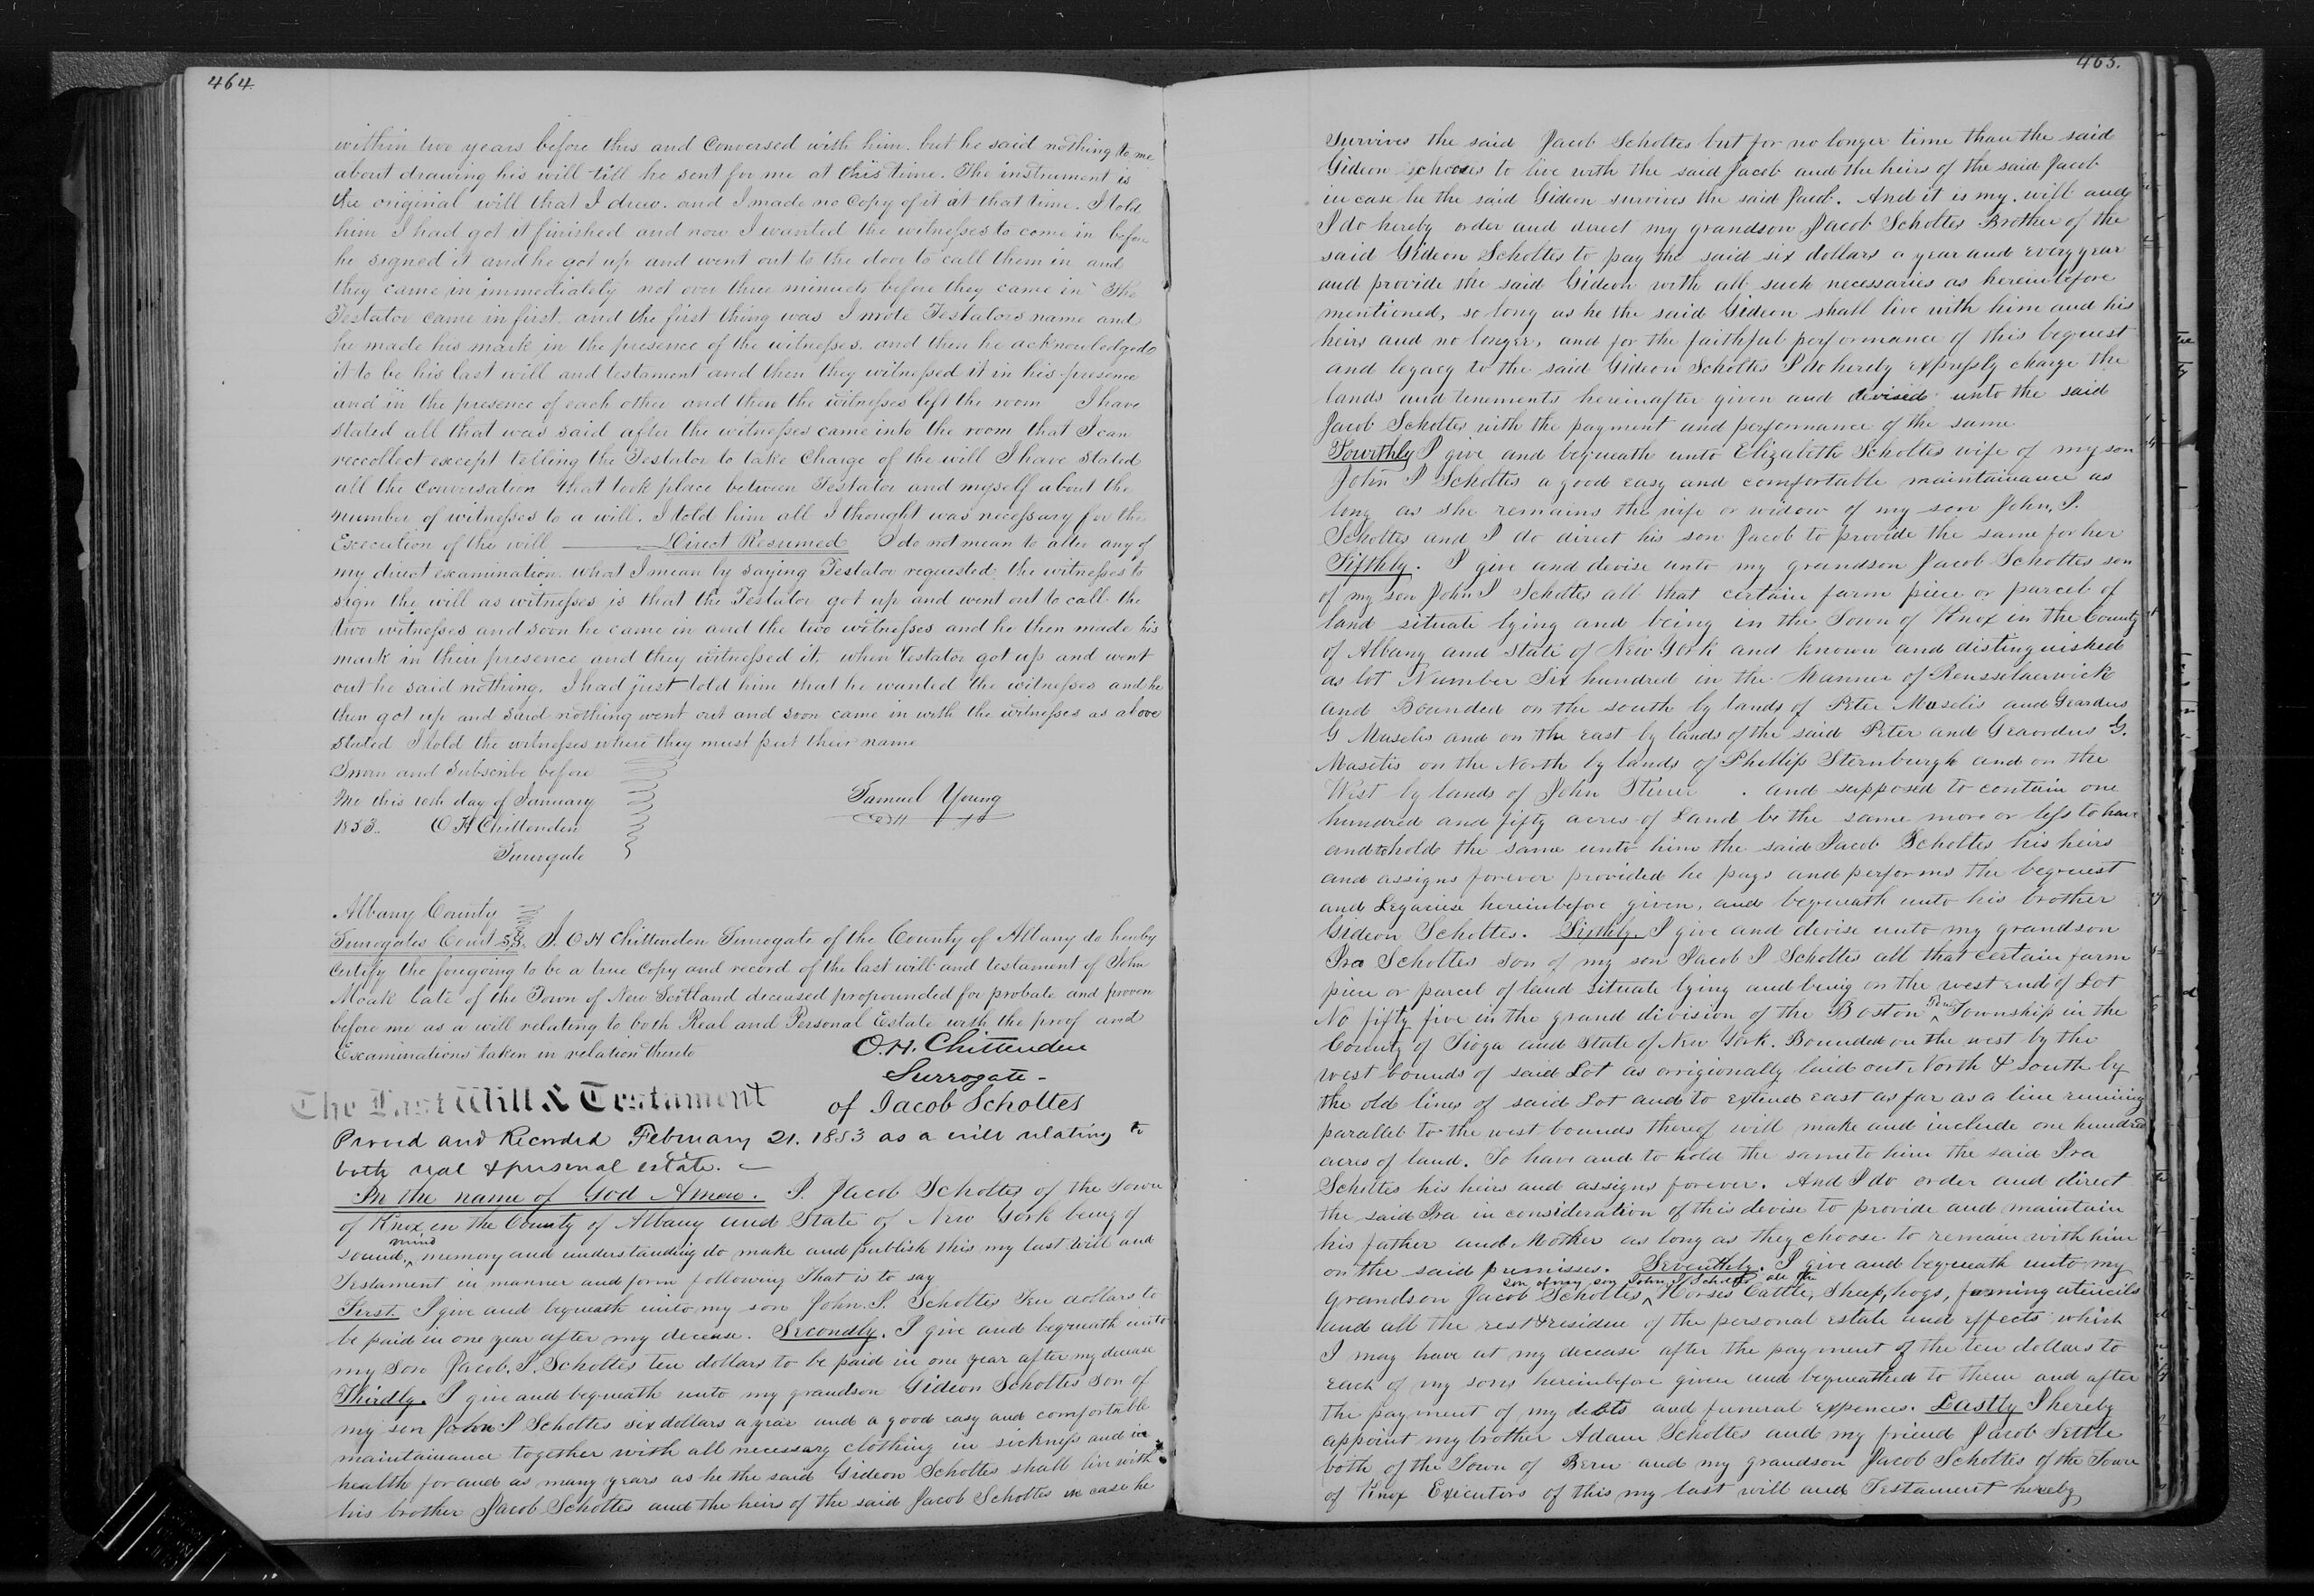 464
within two years before this and Conversed with him. but he said nothing to me
about drawing his will till he sent for me at this time. The instrument is
the original will that I drew. and I made no Copy of it at that time. I told
him I had got it finished and now I wanted the witnesses to come in before
he signed it and he got up and went out to the door to call them in and
they came in immediately not over three minuets before they came in The
Testator came in first. and the first thing was I wrote Testators name and
he made his mark in the presence of the witnesses. and then he acknowledged
it to be his last will and testament and then they witnessed it in his presence
and in the presence of each other and then the witnesses left the room I have
stated all that was said after the witnesses came into the room that I can
reccollect except telling the Testator to take Charge of the will I have Stated
all the Conversation that took place between Testator and myself about the
number of witnesses to a will. I told him all I thought was necessary for the
Excecution of the will Direct Resumed I do not mean to alter any of
my direct examination. what I mean by saying Testator requested the witnesses to
sign the will as witnesses is that the Testator got up and went out to call the
two witnesses and soon he came in and the two witnesses and he then made his
mark in their presence and they witnessed it. when Testator got up and went
out he said nothing. I had just told him that he wanted the witnesses and he
then got up and said nothing went out and soon came in with the witnesses as above
Stated I told the witnesses where they must put their name
Sworn and Subscribe before
Me this 10th day of January Samuel Young
1853. O H Chittenden
Surrogate
Albany County
Surrogates Court SS. I. O H Chittenden Surrogate of the County of Albany do hereby
Certify the foregoing to be a true Copy and record of the last will and testament of John
Moak late of the Town of New Scotland deceased propounded for probate and proven
before me as a will relating to both Real and Personal Estate with the proof and
Examinations taken in relation thereto O.H. Chittenden
Surrogate-
The Last Will & Testament of Jacob Scholtes
Proved and Recorded February 21. 1853 as a will relating to
both real & personal estate.
In the name of God Amen. I. Jacob Scholtes of the Town
of Knox in the County of Albany and State of New York being of
sound, mind memory and understanding do make and publish this my last Will and
Testament in manner and form following That is to say
First I give and bequeath unto my son John. I. Scholtes Ten dollars to
be paid in one year after my decease. Secondly. I give and bequeath unto
my Son Jacob. I. Scholtes ten dollars to be paid in one year after my decease
Thirdly. I give and bequeath unto my grandson Gideon Scholtes Son of
my son John I Scholtes six dollars a year and a good easy and comfortable
maintainance together with all necessary clothing in sickness and in
health for and as many years as he the said Gideon Scholtes shall live with
his brother Jacob Scholtes and the heirs of the said Jacob Scholtes in case he
465.
Survives the said Jacob Scholtes but for no longer time than the said
Gideon chooses to live with the said Jacob and the heirs of the said Jacob
in case he the said Gideon survives the said Jacob. And it is my will and
I do hereby order and direct my grandson Jacob Scholtes Brother of the
said Gideon Scholtes to pay the said six dollars a year and every year
and provide the said Gideon with all such necessaries as hereinbefore
mentioned, so long as he the said Gideon shall live with him and his
heirs and no longer, and for the faithful performance of this bequest
and legacy to the said Gideon Scholtes I do hereby expressly charge the
lands and tenements hereinafter given and devised unto the said
Jacob Scholtes with the payment and performance of the same
Fourthly I give and bequeath unto Elizabeth Scholtes wife of my son
John I Scholtes a good easy and comfortable maintainance as
long as she remains the wife or widow of my son John, I.
Scholtes and I do direct his son Jacob to provide the same for her
Fifthly. I give and devise unto my grandson Jacob Scholtes son
of my son John I Scholtes all that certain farm piece or parcel of
land situate lying and being in the Town of Knox in the County
of Albany and State of New York and known and distinguished
as lot Number Six hundred in the Manner of Rensselaerwick
and Bounded on the south by lands of Peter Maselis and Geardus
G Maselis and on the east by lands of the said Peter and Geaordus G.
Maselis on the North by lands of Phillip Sternburgh and on the
West by lands of John . and supposed to contain one
hundred and fifty acres of Land be the same more or less to have
and to hold the same unto him the said Jacob Scholtes his heirs
and assigns forever provided he pays and performs the bequest
and Legacies hereinbefore given, and bequeath unto his brother
Gideon Scholtes. Sixthly. I give and devise unto my grandson
Ira Scholtes son of my son Jacob I Scholtes all that certain farm
piece or parcel of land situate lying and being on the west end of Lot
No fifty five in the grand division of the Boston Ten Township in the
County of Tioga and State of New York. Bounded on the west by the
west bounds of said Lot as orrigionally laid out North & South by
the old lines of said Lot and to extend east as far as a line running
parallel to the west bounds thereof will make and include one hundred
acres of land. To have and to hold the same to him the said Ira
Scholtes his heirs and assigns forever. And I do order and direct
the said Ira in consideration of this devise to provide and maintain
his father and Mother as long as they choose to remain with him
on the said premisses. Seventhly. I give and bequeath unto my
son of my son John I Scholtes all the
grandson Jacob Scholtes Horses Cattle, Sheep, hogs, farming utencils
and all the rest & residue of the personal estate and effects which
I may have at my decease after the payment of the ten dollars to
each of my sons hereinbefore given and bequeathed to them and after
the payment of my debts and funeral expences. Lastly I hereby
appoint my brother Adam Scholtes and my friend Jacob Settle
both of the Town of Bern and my grandson Jacob Scholtes of the Town
of Knox Executors of this my last will and Testament hereby